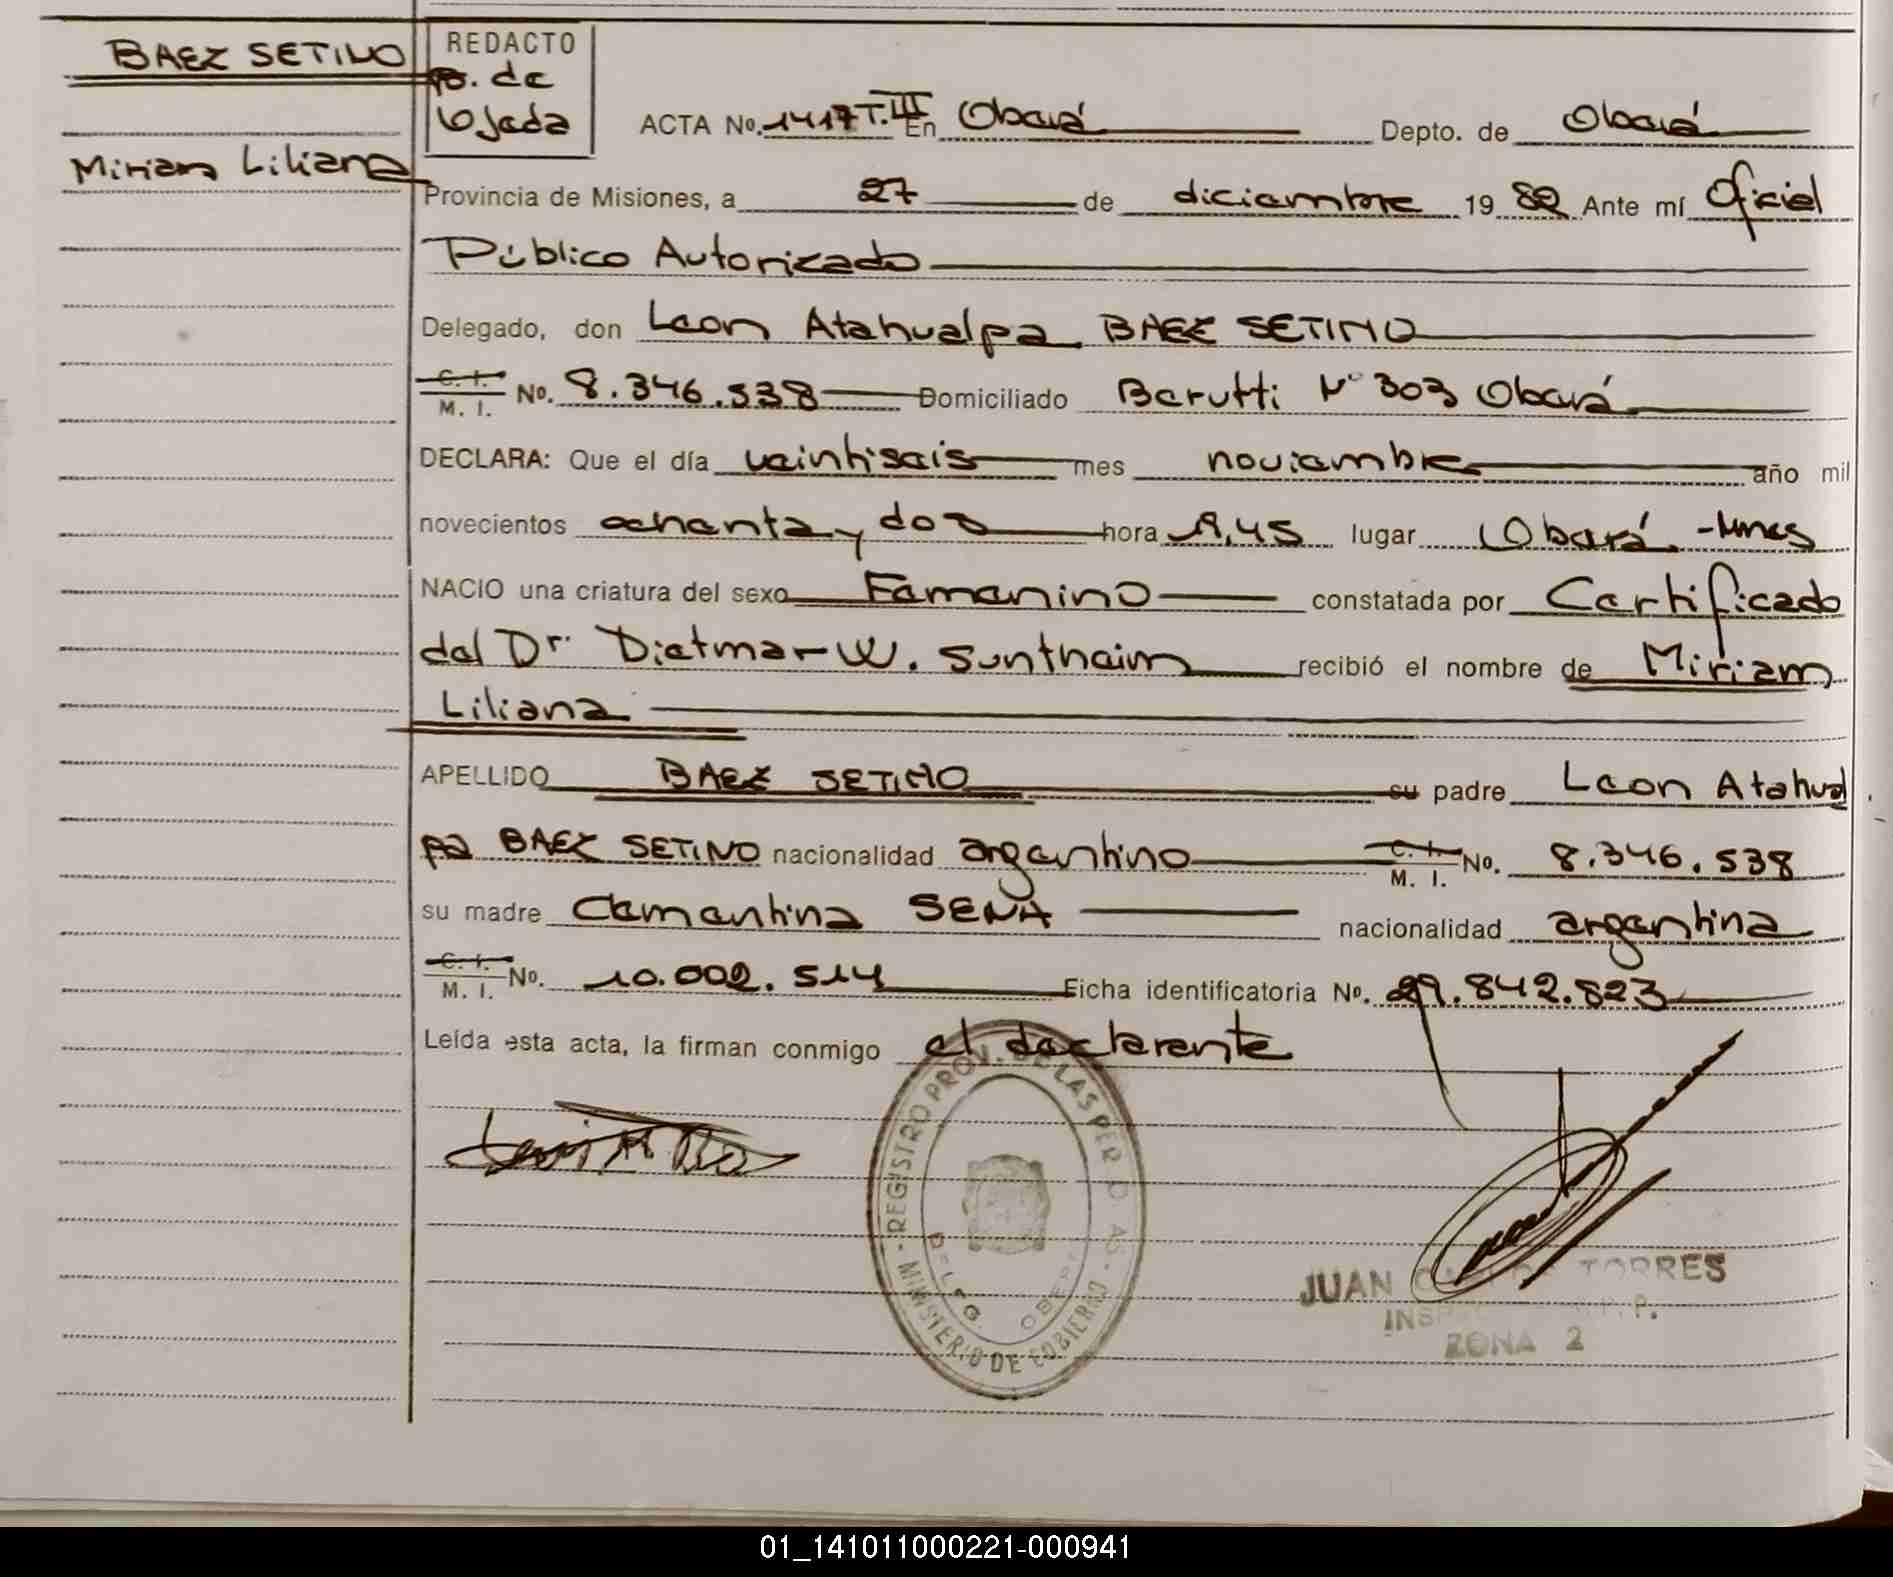 BAEZ SETINO
REDACTO
P. de
Ojeda
ACTA No. 1417 T.III En Oberá Depto. de Oberá
Miriam Liliana
Provincia de Misiones, a 27 de diciembre 19 82 Ante mí Oficial
Público Autorizado
Delegado, don Leon Atahualpa BAEZ SETINO
C. I. M. I. No. 8.346.538 Domiciliado Berutti N° 303 Oberá
DECLARA: Que el día veintiseis mes noviembre año mil
novecientos ochenta y dos hora 9,45 lugar Oberá -Mnes
NACIO una criatura del sexo Femenino constatada por Certificado
del Dr. Dietmar W. Suntheim recibió el nombre de Miriam
Liliana
APELLIDO BAEZ SETINO su padre Leon Atahual
pa BAEZ SETINO nacionalidad argentino C. I. M. I. No. 8.346.538
su madre Clementina SENA nacionalidad argentina
C. I. M. I. No. 10.002.514 Ficha identificatoria No. 29.842.823
Leída esta acta, la firman conmigo el declarante
REGISTRO PROV. DE LAS PER
MINISTERIO DE GOBIERNO
DELEG. OBERA
JUAN TORRES
ZONA 2
01_141011000221-000941